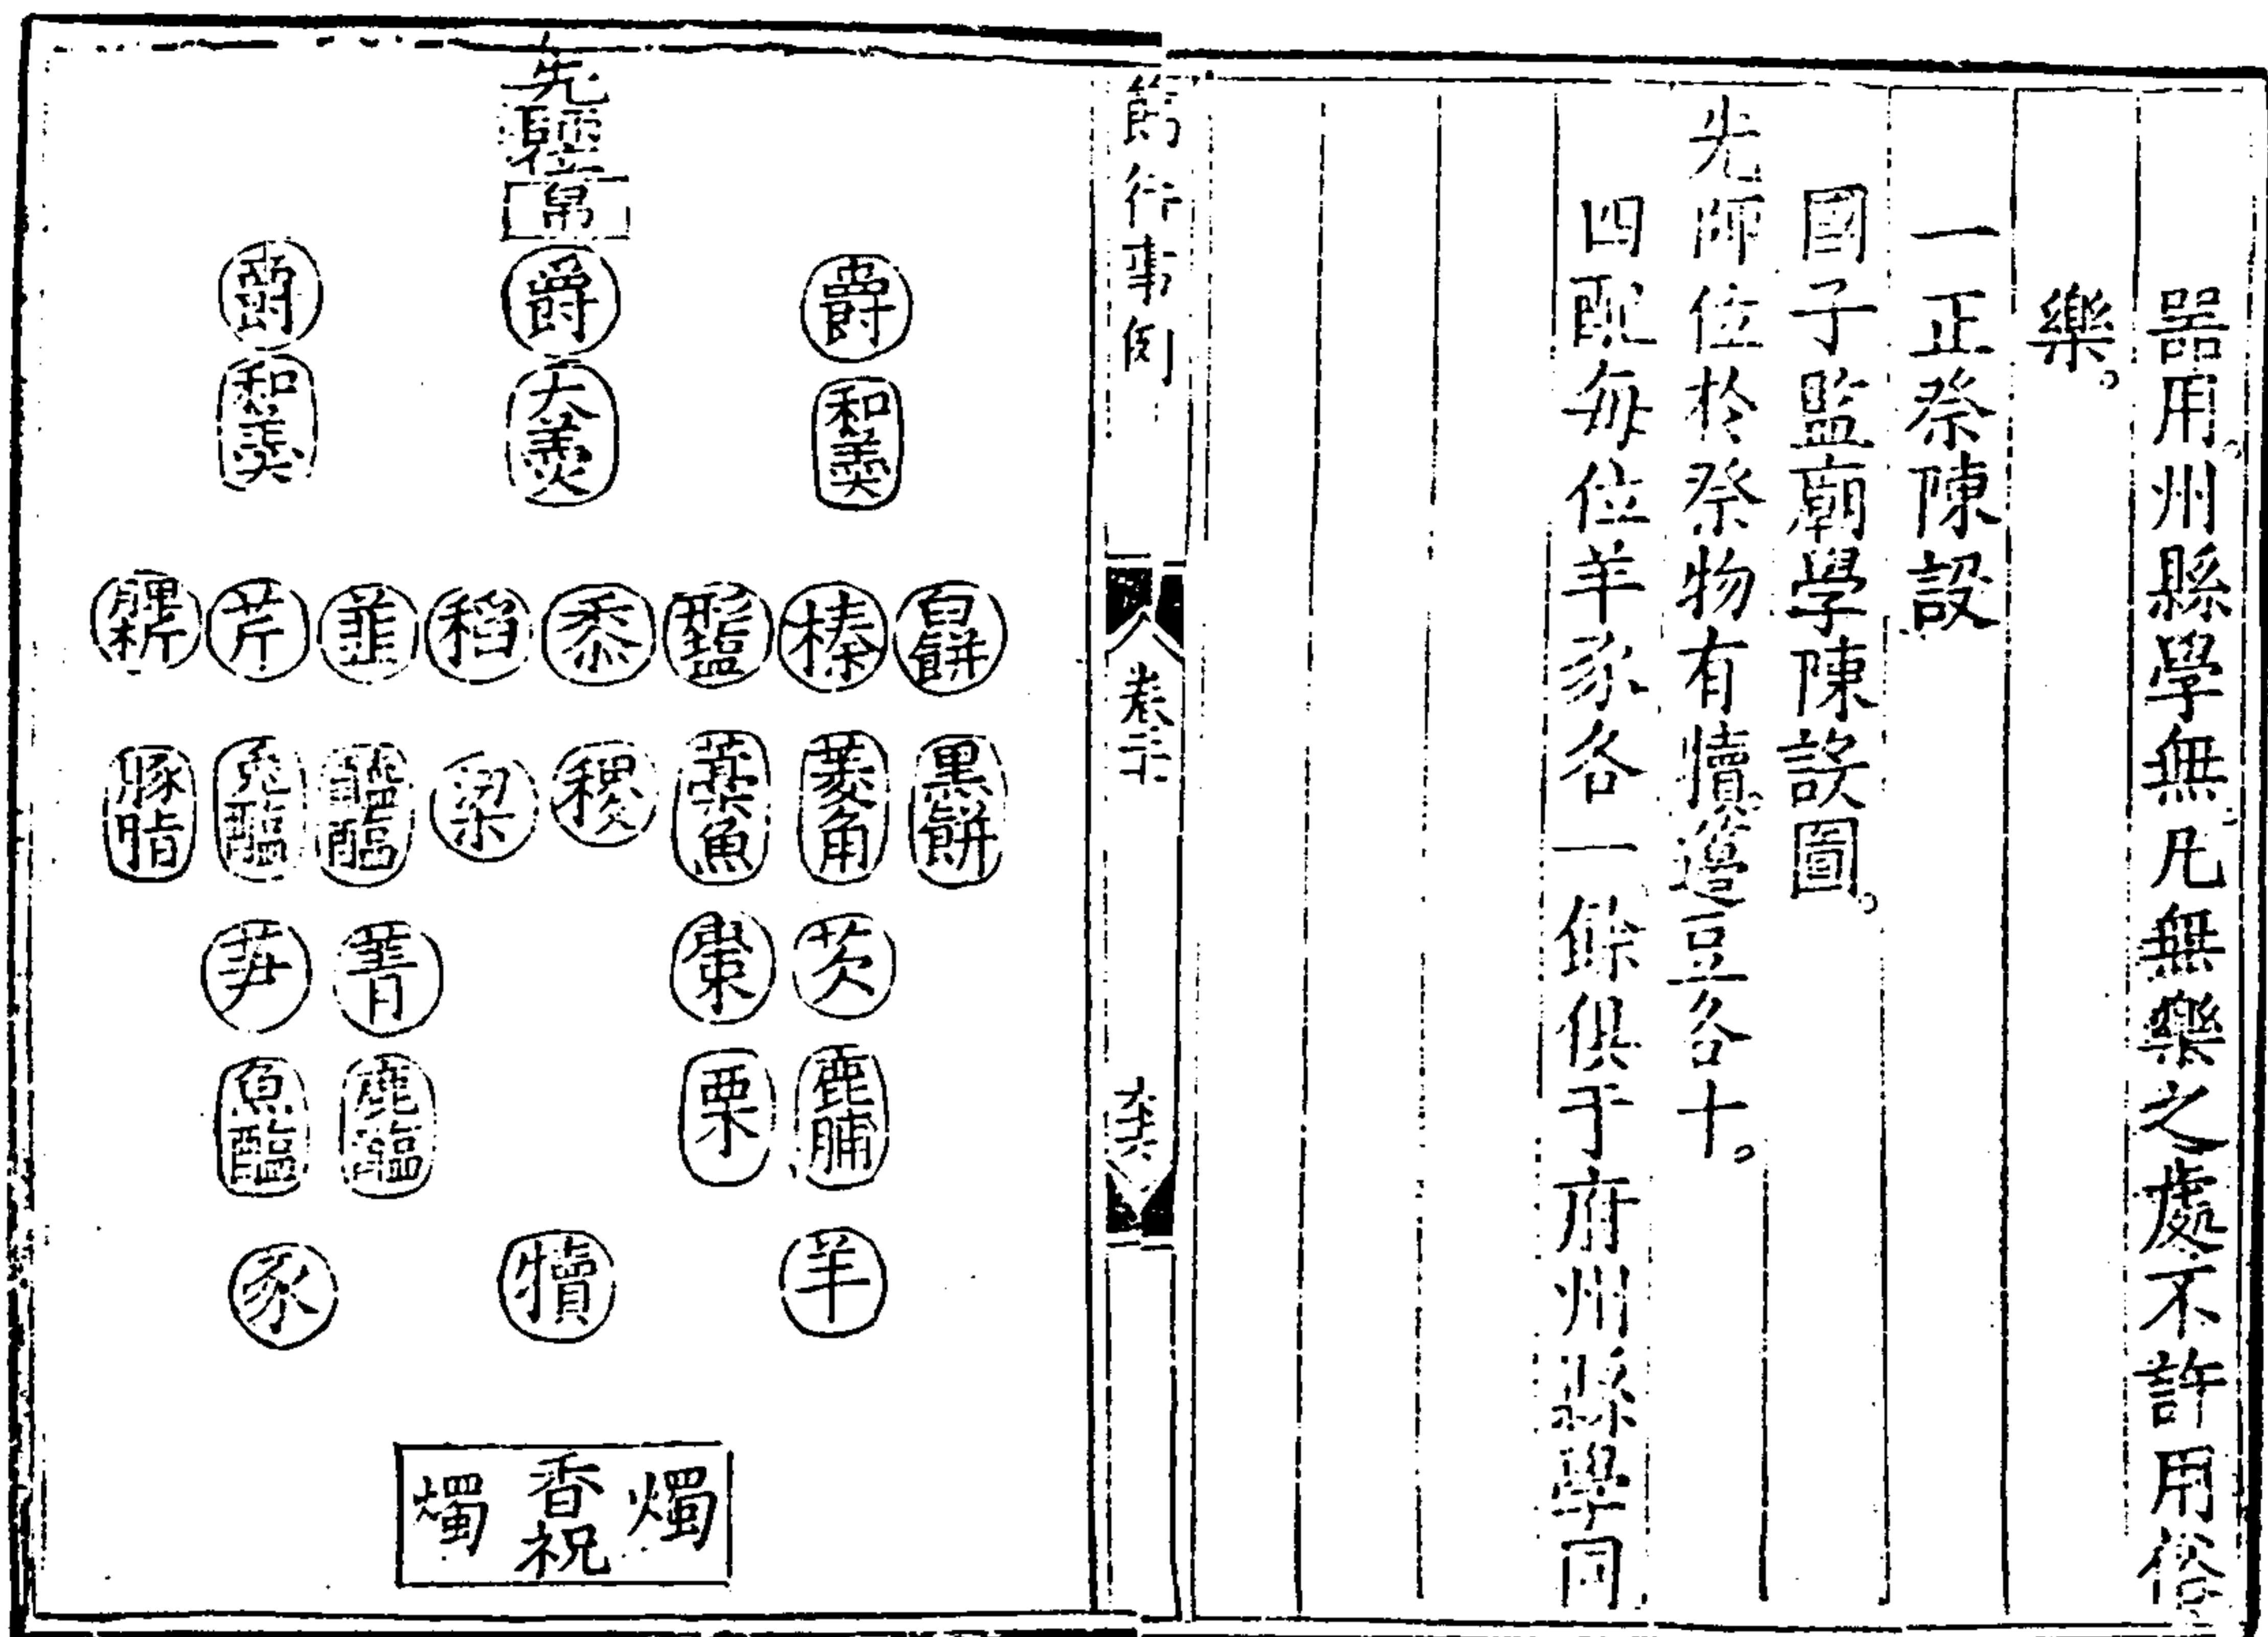 器用州縣學無凡無樂之處不許用俗
樂。
一正祭陳設
國子監廟學陳設圖。
先師位於祭物有犢籩豆各十。
四配每位羊豕各一餘俱于府州縣學同
行事例
卷
先聖位
帛
爵 爵 爵
和羹 大羹 和羹
白餅 榛 形鹽 黍 稻 韮 芹 脾析
黑餅 菱角 藁魚 稷 粱 醓醢 兔醢 豚胉
芡 棗 菁 笋
鹿脯 栗 鹿醢 魚醢
羊 犢 豕
燭 香祝 燭